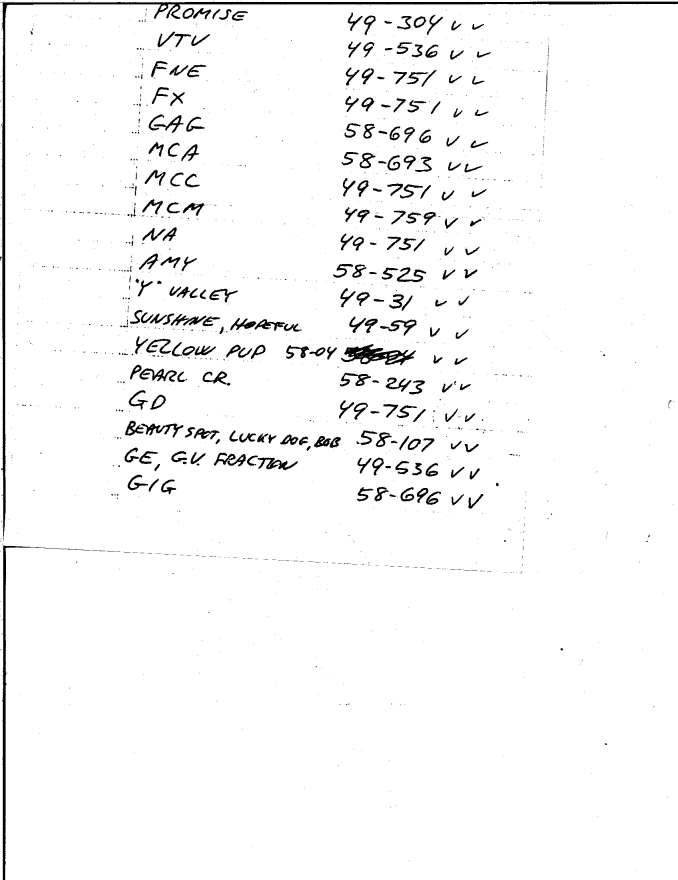 PROMISE 49-304 ✓ ✓
VTV 49-536 ✓ ✓
FNE 49-751 ✓ ✓
FX 49-751 ✓ ✓
GAG 58-696 ✓ ✓
MCA 58-693 ✓✓
MCC 49-751 ✓ ✓
MCM 49-759 ✓ ✓
NA 49-751 ✓✓
AMY 58-525 ✓✓
"Y" VALLEY 49-31 ✓ ✓
SUNSHINE, HOPEFUL 49-59 ✓ ✓
YELLOW PUP 58-04 ✓ ✓
PEARL CR. 58-243 ✓✓
GD 49-751 ✓✓
BEAUTY SPOT, LUCKY DOG, BOB 58-107 ✓✓
GE, G.V. FRACTION 49-536 ✓✓
GIG 58-696 ✓✓